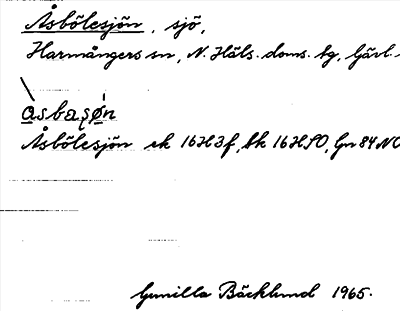 Åsbölesjön, sjö,
Harmångers sn, N. Häls. doms. tg, Gävl.
åsbaşøn
Åsbölesjön ek 16H3f, bk 16H SO, Gn 84 NO
Gunilla Bäcklund 1965.